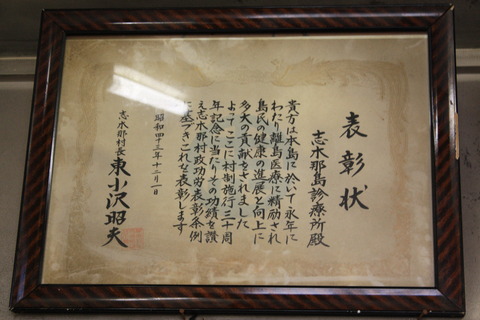 表彰状
志木那島診療所殿
貴方は本島に於いて永年に
わたり離島医療に精励され
島民の健康の進展と向上に
多大の貢献をされました
よってここに村制施行三十周
年記念に当たりその功績を讃
え志木那村政功労表彰条例
に基づきこれを表彰します
昭和四十三年十二月一日
志木那村長 東小沢昭夫